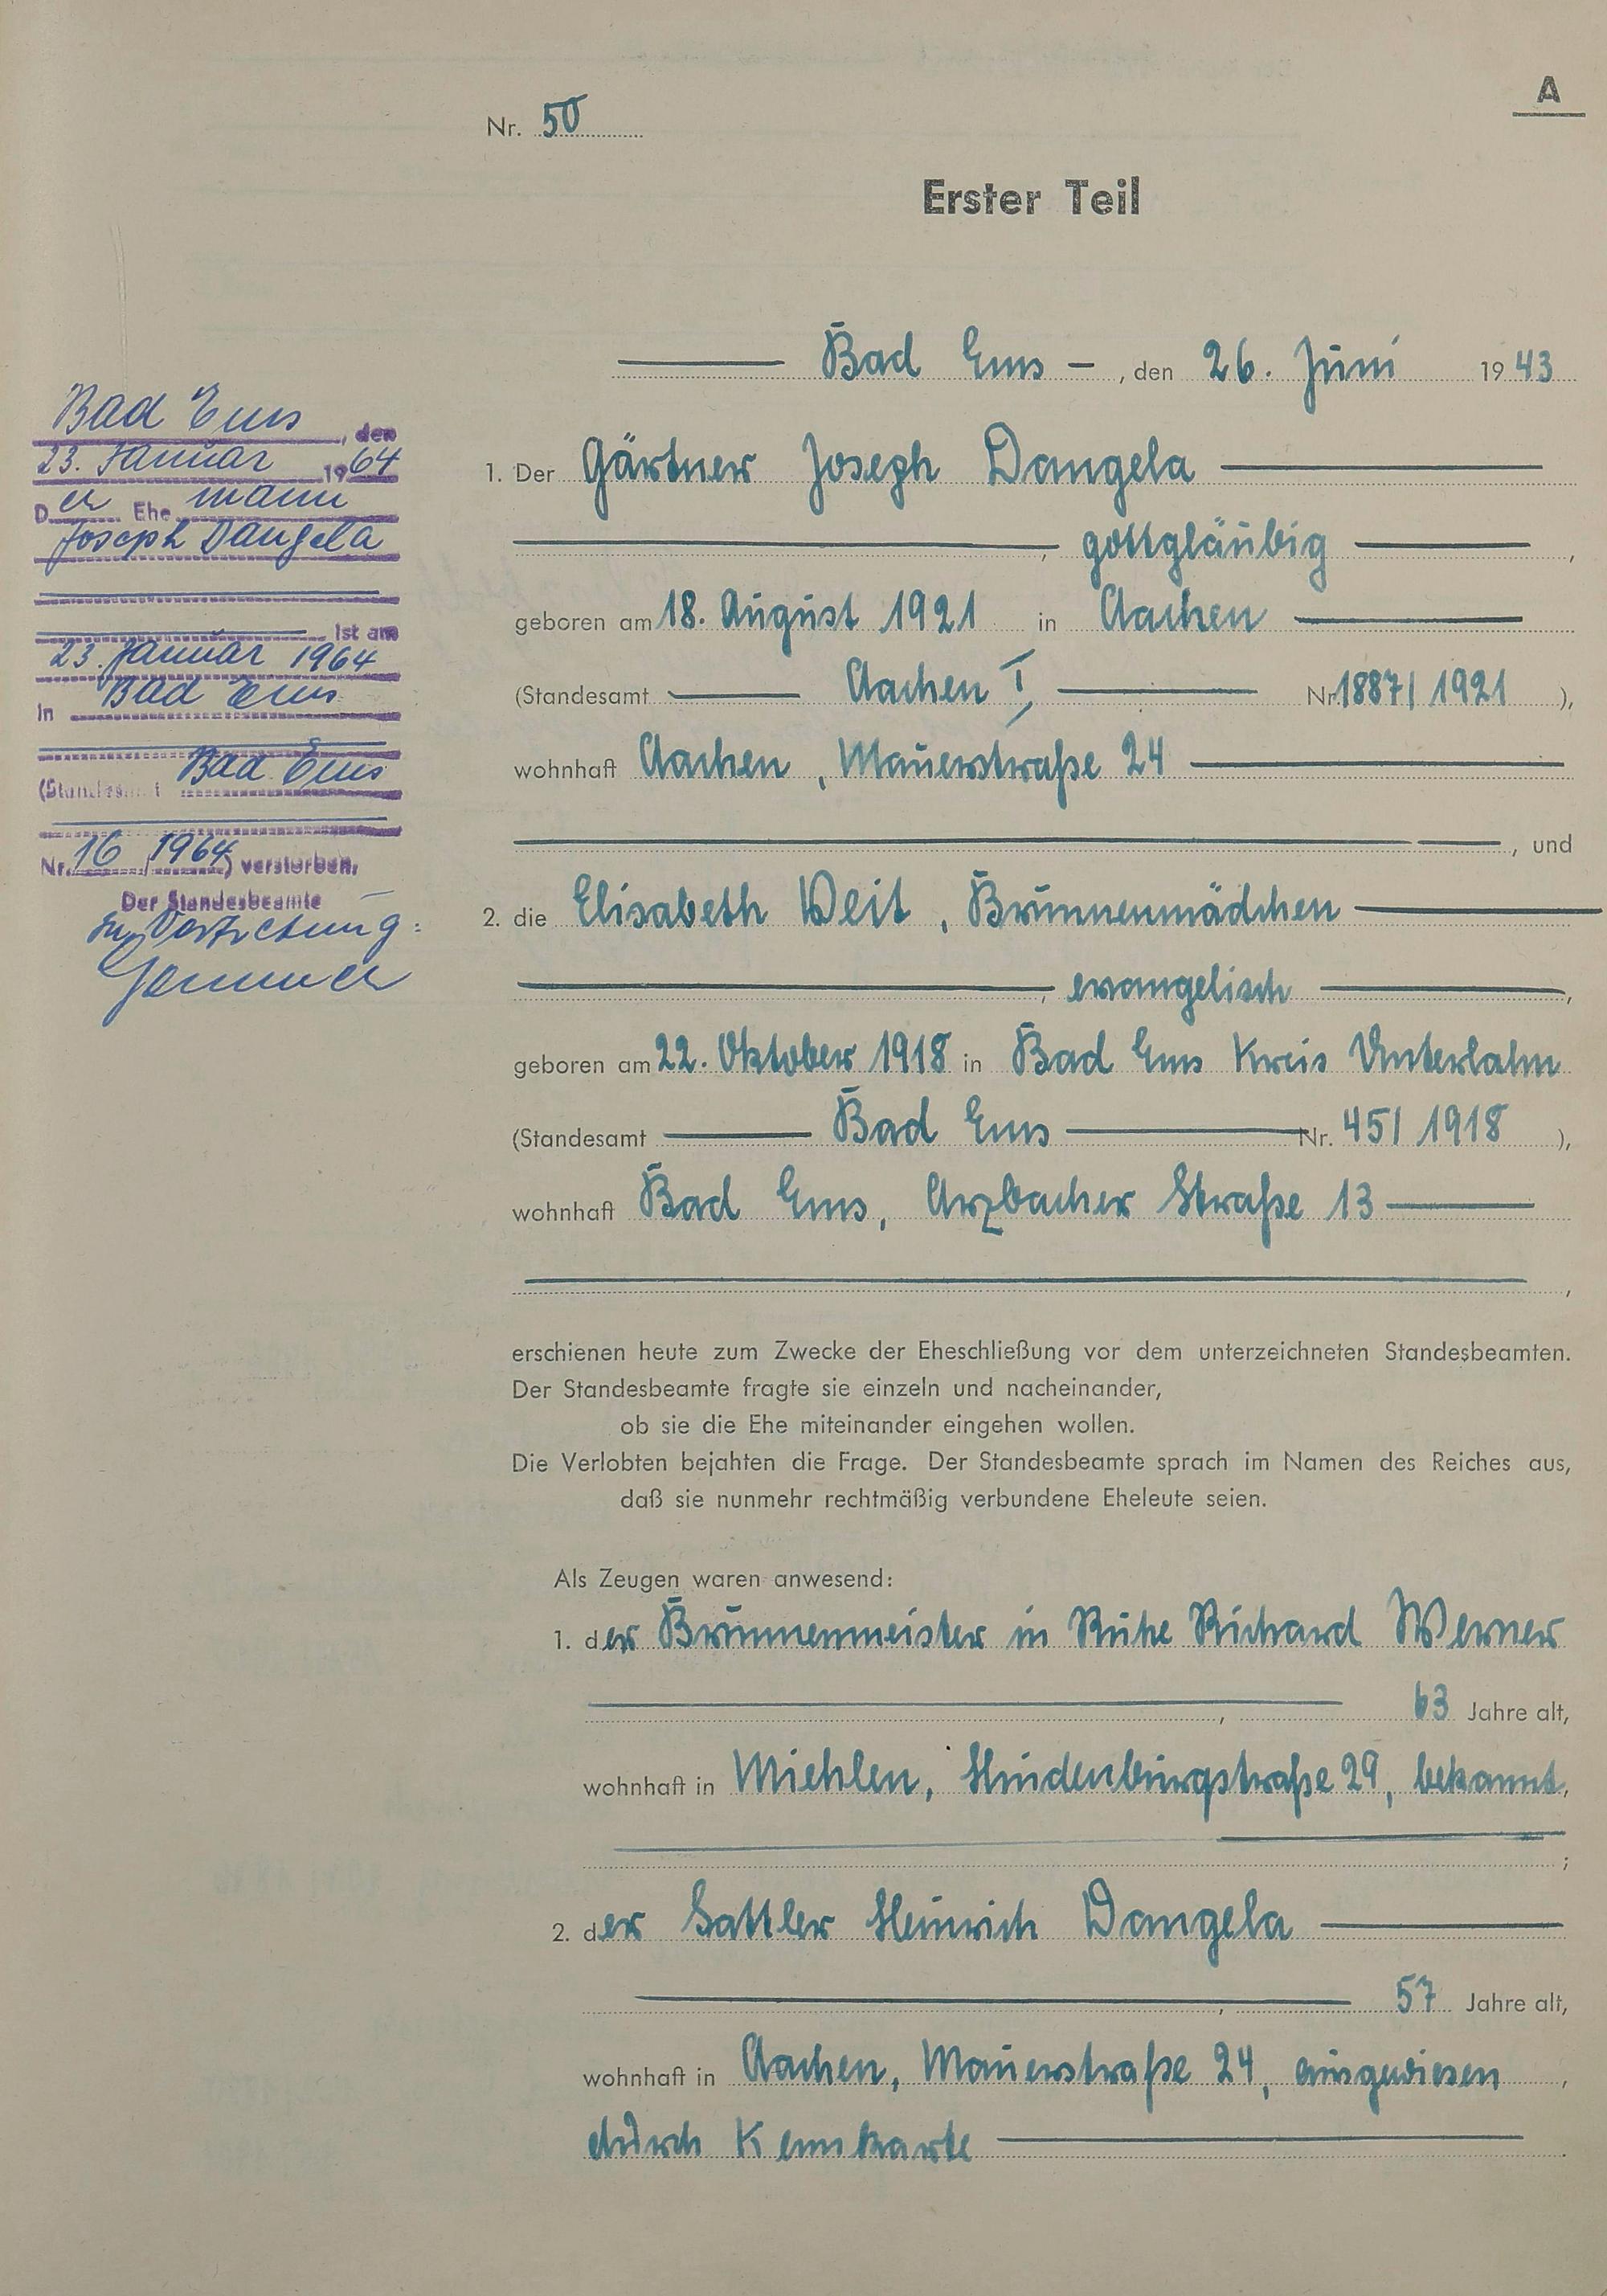 A
Nr. 50
Erster Teil
Bad Ems –, den 26. Juni 1943
1. Der Gärtner Joseph Dangela
, gottgläubig ,
geboren am 18. August 1921 in Aachen
(Standesamt Aachen I, Nr. 1887/1921 ),
wohnhaft Aachen, Mauerstraße 24
, und
2. die Elisabeth Weit, Brunnenmädchen
, evangelisch ,
geboren am 22. Oktober 1918 in Bad Ems Kreis Unterlahn
(Standesamt Bad Ems Nr. 45/1918 ),
wohnhaft Bad Ems, Arzbacher Straße 13
,
erschienen heute zum Zwecke der Eheschließung vor dem unterzeichneten Standesbeamten.
Der Standesbeamte fragte sie einzeln und nacheinander,
ob sie die Ehe miteinander eingehen wollen.
Die Verlobten bejahten die Frage. Der Standesbeamte sprach im Namen des Reiches aus,
daß sie nunmehr rechtmäßig verbundene Eheleute seien.
Als Zeugen waren anwesend:
1. der Brunnenmeister in Ruhe Richard Werner
, 63 Jahre alt,
wohnhaft in Miehlen, Hindenburgstraße 29, bekannt,
;
2. der Sattler Heinrich Dangela
, 57 Jahre alt,
wohnhaft in Aachen, Mauerstraße 24, ausgewiesen ,
durch Kennkarte .
Bad Ems, den
23. Januar 1964
Der Ehemann
Joseph Dangela
ist am
23. Januar 1964
in Bad Ems
(Standesamt Bad Ems
Nr. 16/1964) verstorben.
Der Standesbeamte
In Vertretung: